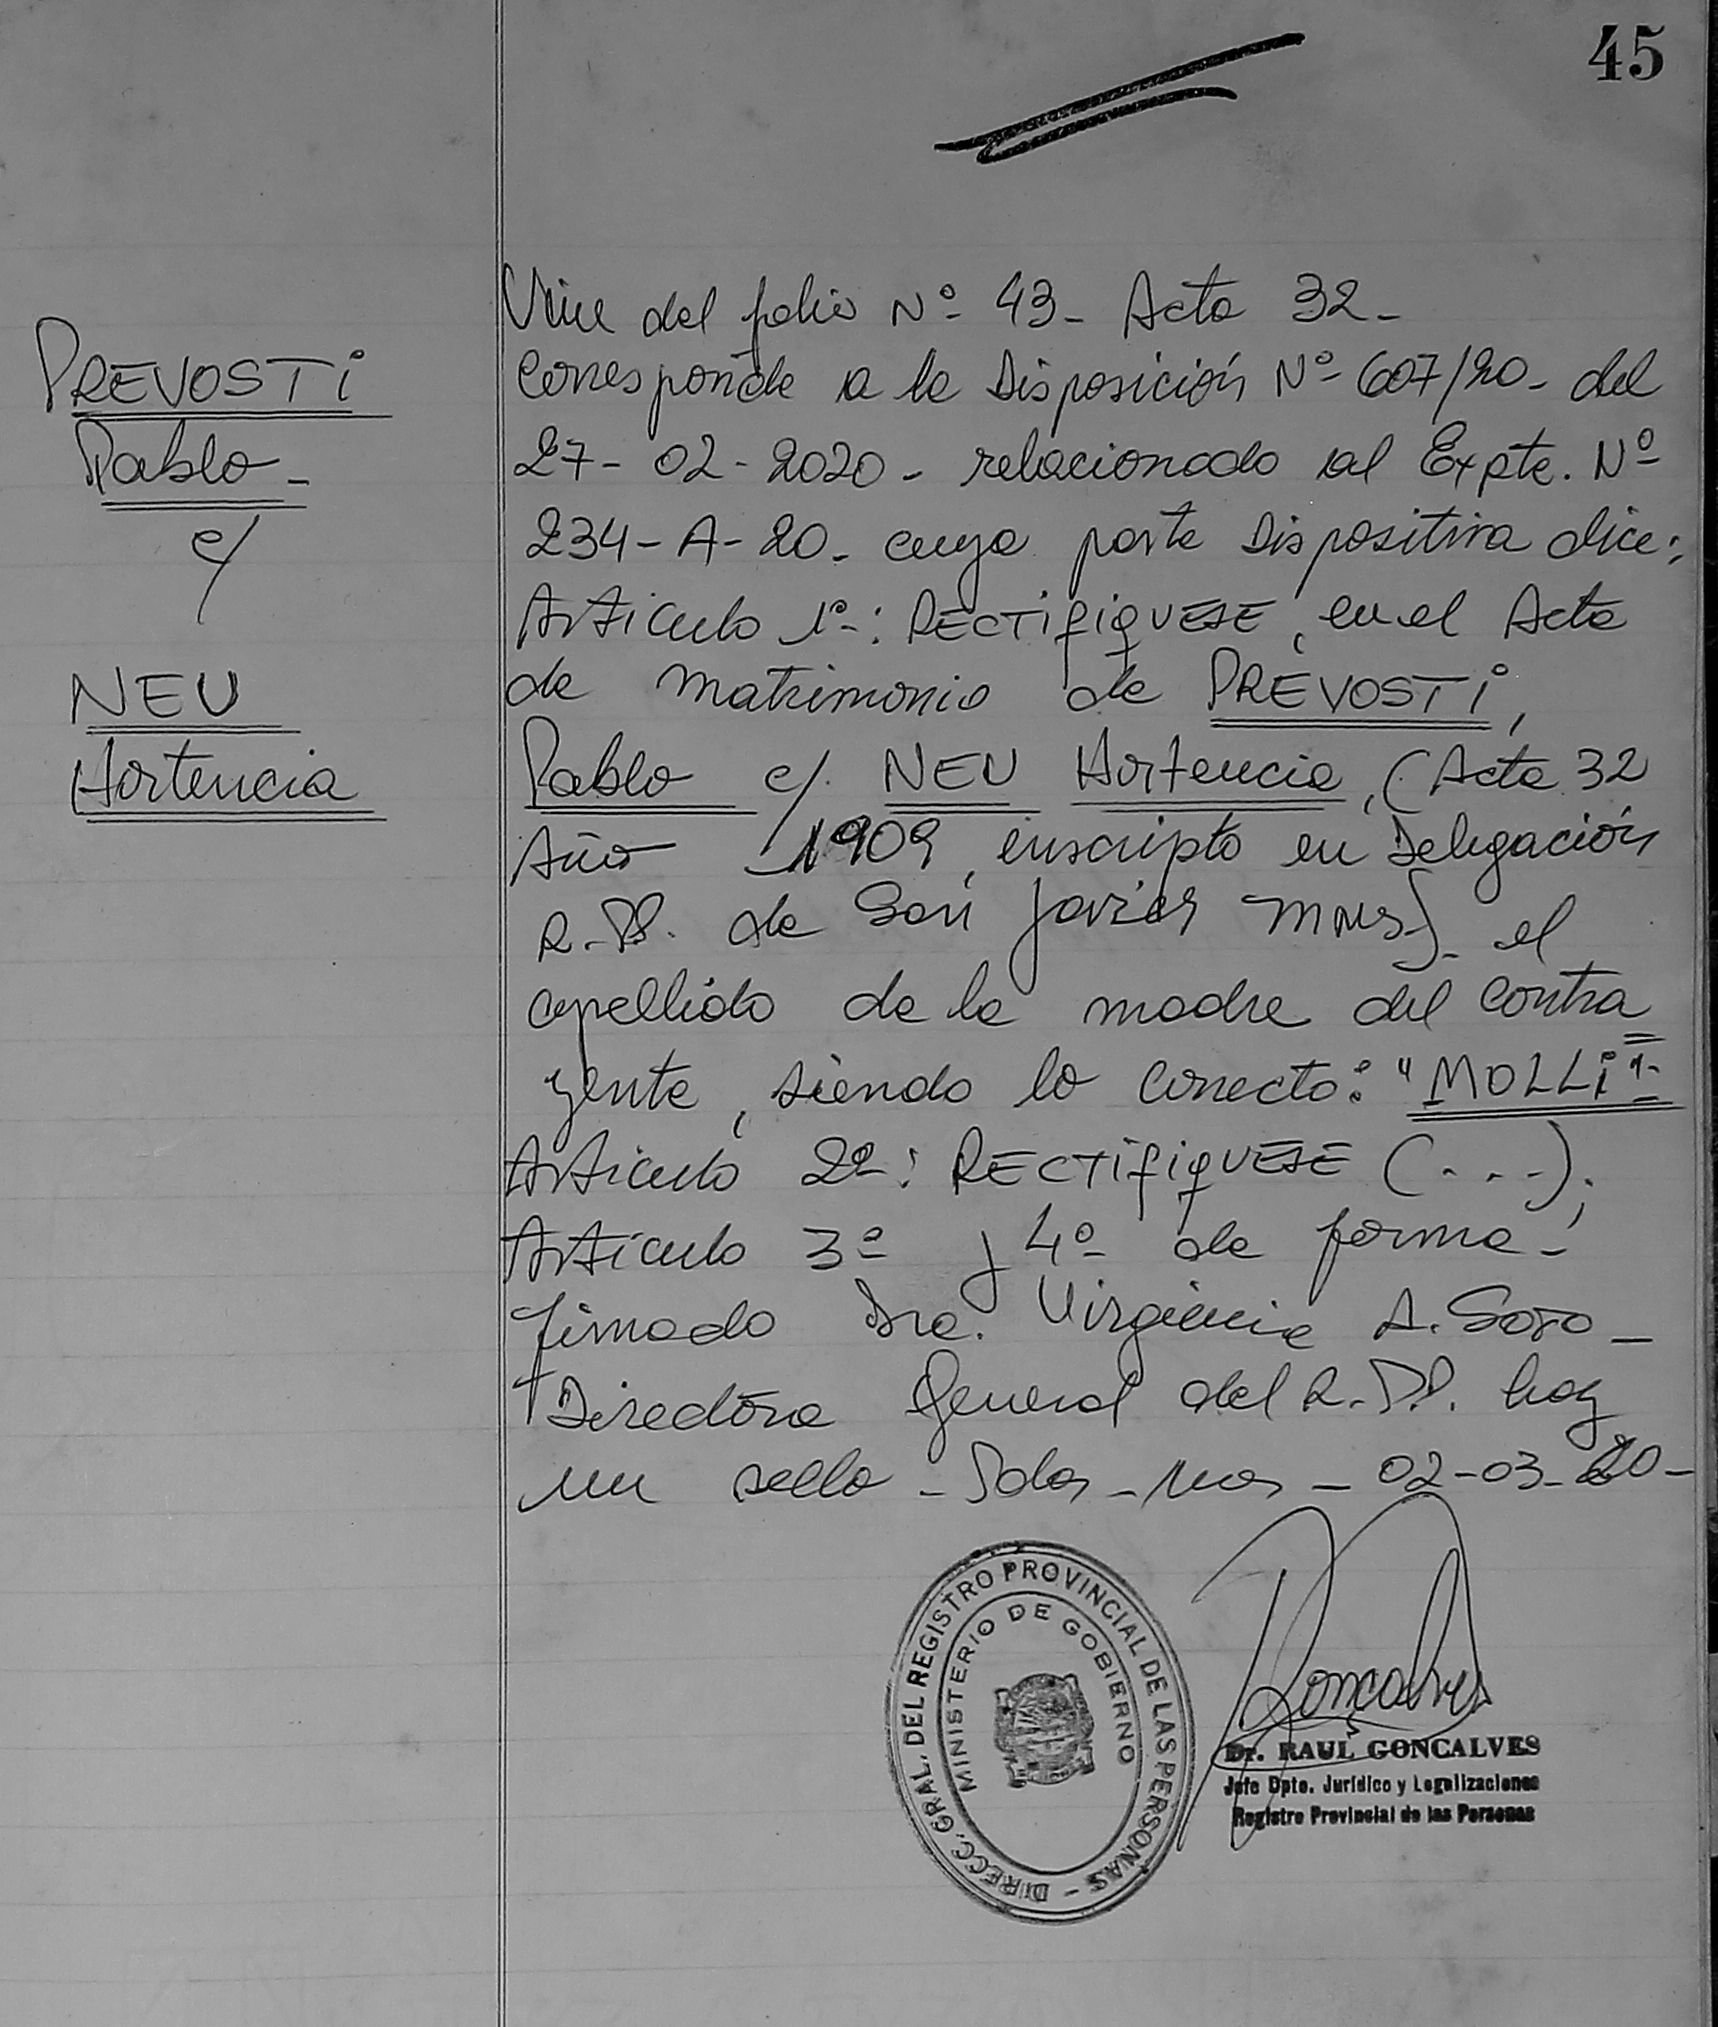 45
PREVOSTi
Pablo -
c/
NEU
Hortencia
Viene del folio Nº 43 - Acta 32 -
Corresponde a la Disposición Nº 607/20 - del
27 - 02 - 2020 - relacionado al Expte. Nº
234 - A - 20 - cuya parte Dispositiva dice:
Artículo 1º: RECTIFIQUESE, en el Acta
de matrimonio de PREVOSTi,
Pablo c/. NEU Hortencia, (Acta 32
Año 1909, inscripto en Delegación
R.PP. de San Javier Mnes) - el
apellido de la madre del contra
yente, siendo lo correcto: "MOLLi" -
Artículo 2º: RECTIFIQUESE (...);
Artículo 3º y 4º de forma -
firmado Dra. Virginia A. Soto -
Directora General del R.PP. hay
un sello - Pdas - Mnes - 02-03-20 -
DIRECC. GRAL. DEL REGISTRO PROVINCIAL DE LAS PERSONAS -
MINISTERIO DE GOBIERNO
Goncalves
Dr. RAUL GONCALVES
Jefe Dpto. Jurídico y Legalizaciones
Registro Provincial de las Personas